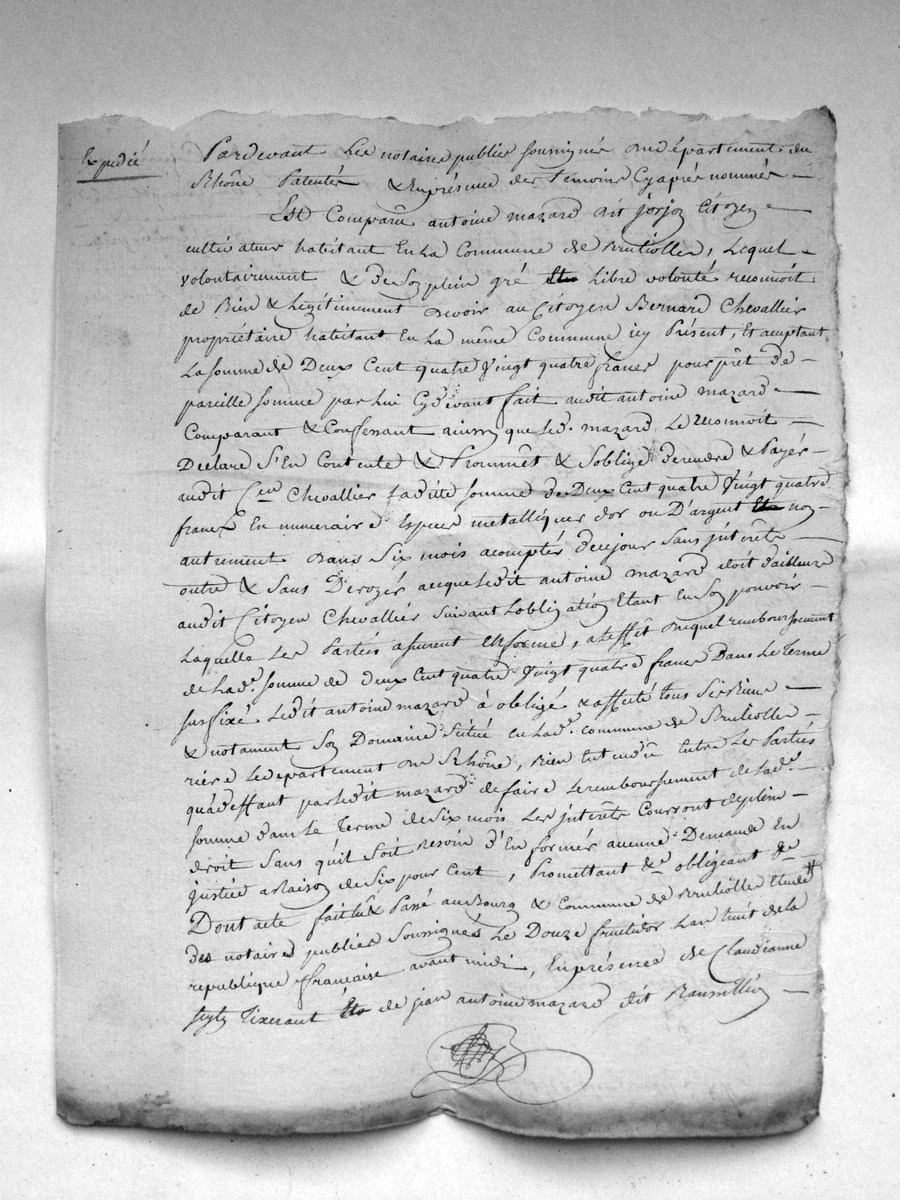 Expedié
Pardevant Les notaires publics soussignés du département du
Rhône Patentés & En présence des temoins Cy après nommés
Est Comparû antoine mazard dit jorjoz Citoyen
cultivateur habitant En La Commune de Brulliolles, Lequel
volontairement & de son plein gré Libre volonté reconnoit
de Bien & Légitimement devoir au Citoyen Bernard Chevallier
propriétaire habitant En La même Commune icy Présent, Et aceptant
La somme de Deux Cent quatre Vingt quatre francs pour prêt de
pareille somme par lui Cy devant fait audit antoine mazard
Comparant & Confessant ainsy que led. mazard Le reconnoit
Déclare S'En Contente & Prommêt & Soblige de rendre & Payér
audit Cen Chevallier Ladite somme de Deux Cent quatre Vingt quatre
francs En numeraire d'Especes metalliques d'or ou D'argent non
autrement dans Six mois acomptér de ce jour Sans jnterêts
outre & Sans Derogér ace que ledit antoine mazard doit d'ailleurs
audit Citoyen Chevallier suivant Lobligation Etant En son pouvoir
Laquelle Les Parties assurent En forme, a Leffêt duquel remboursement
de Lade. somme de deux Cent quatre Vingt quatre francs Dans Le terme
susfixé Ledit antoine mazard à obligé & affecté tous Ses Biens
& notament Son Domaine Situé en Lade. commune de Brulliolle
riére Le departement du Rhône, Bien Entendû Entre Les Parties
qu'a deffaut par Ledit mazard de faire Le remboursement de Lade.
somme dans Le terme de Six mois Les jnterêts Courront de plein
droit Sans qu'il Soit Besoin d'En formér aucune Demande En
justice a raison de Six pour cent, Promettant &c. obligeant &c.
Dont acte fait Lû & Passé au Bourg & Commune de Brulliolle Etude
des notaires publics Soussignés Le Douze fructidor Lan huit de la
republique francaise avant midi, En présence de Claude anne
tixerant de jean antoine mazard dit